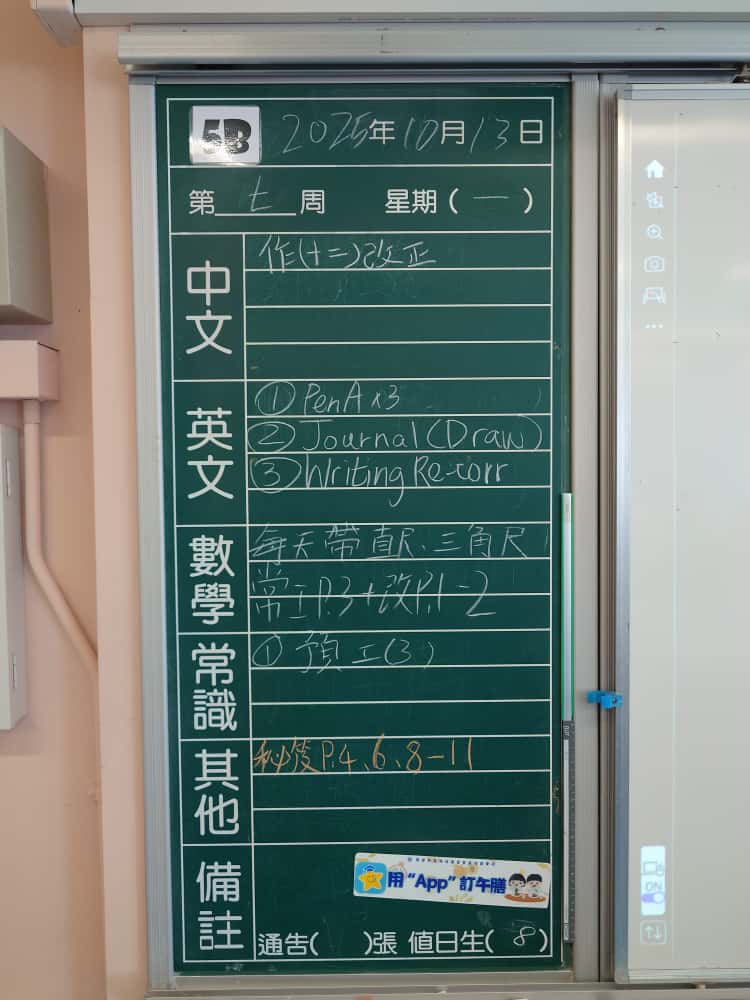 5B 2025年10月13日
第七周 星期(一)
中文
作(十二)改正
英文
① PenA x3
② Journal(Draw)
③ Writing Re-corr
數學
每天帶直尺、三角尺
常工P.3+改P.1-2
常識
① 預工(3)
其他
P.4、6、8-11
備註
用“App”訂午膳
通告( )張 值日生(8)
ON